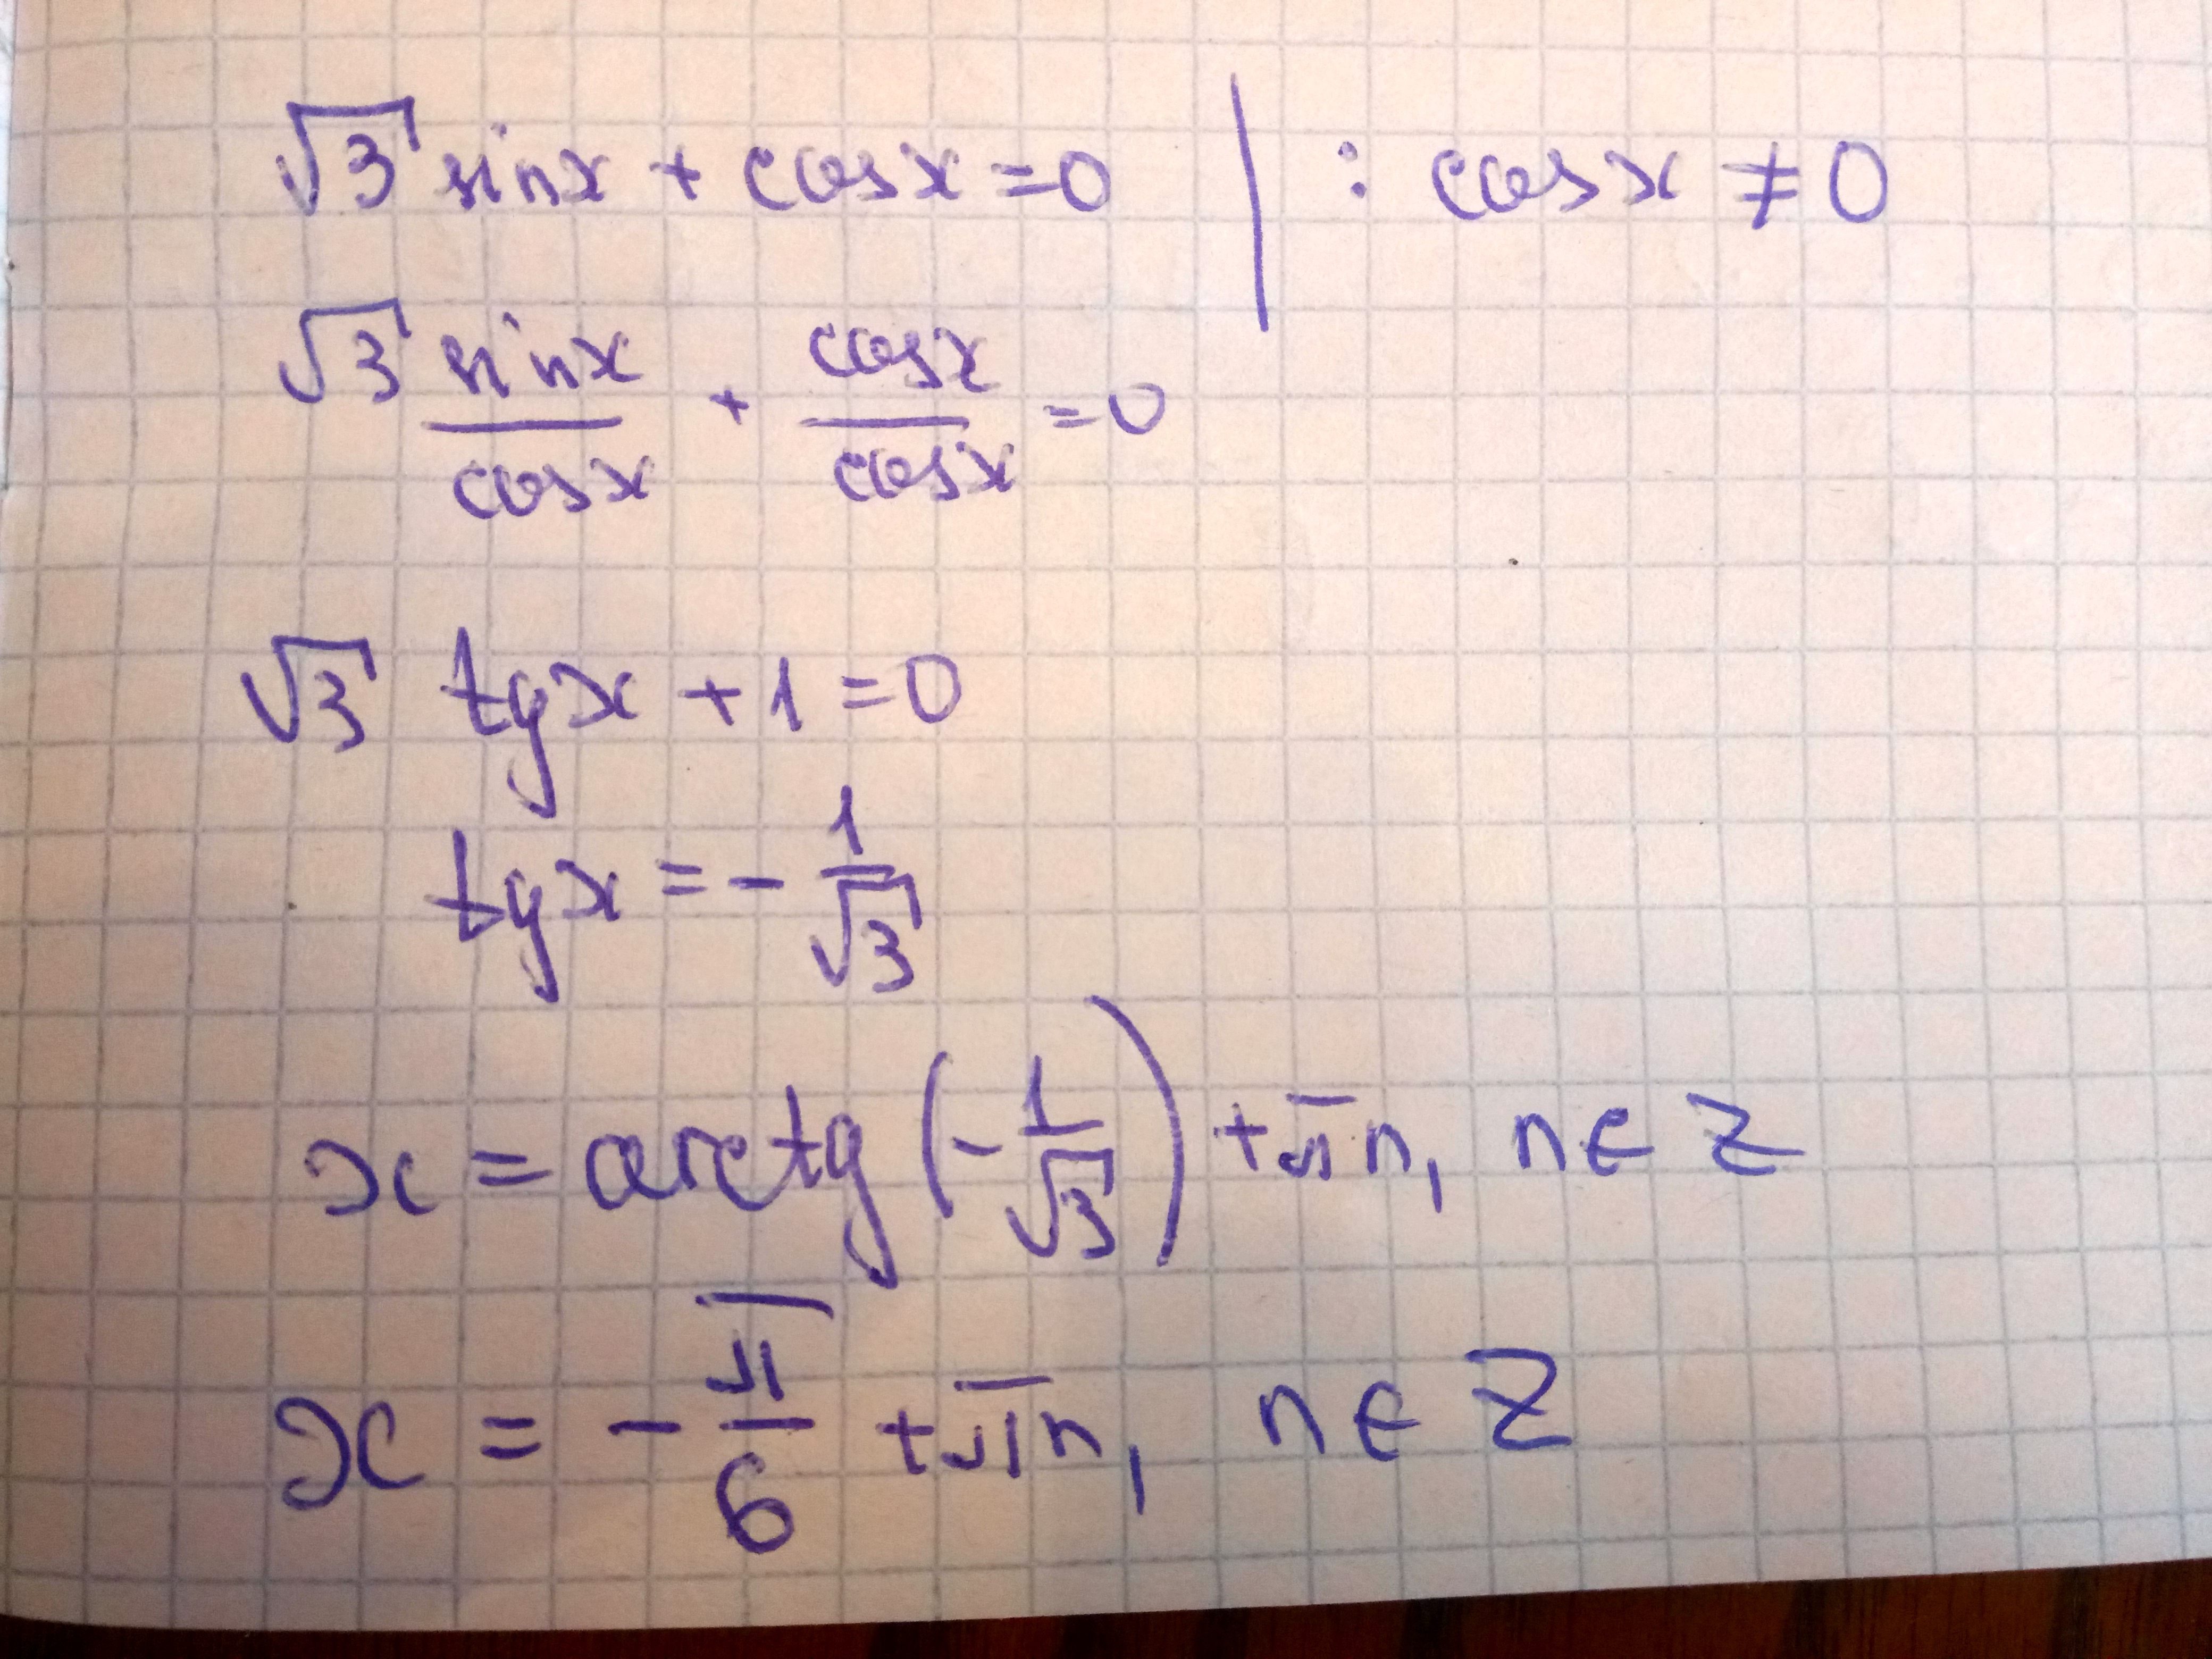 √3 sinx + cosx = 0 | : cosx ≠ 0
√3 sinx/cosx + cosx/cosx = 0
√3 tgx + 1 = 0
tgx = - 1/√3
x = arctg (- 1/√3) + πn, n ∈ Z
x = - π/6 + πn, n ∈ Z